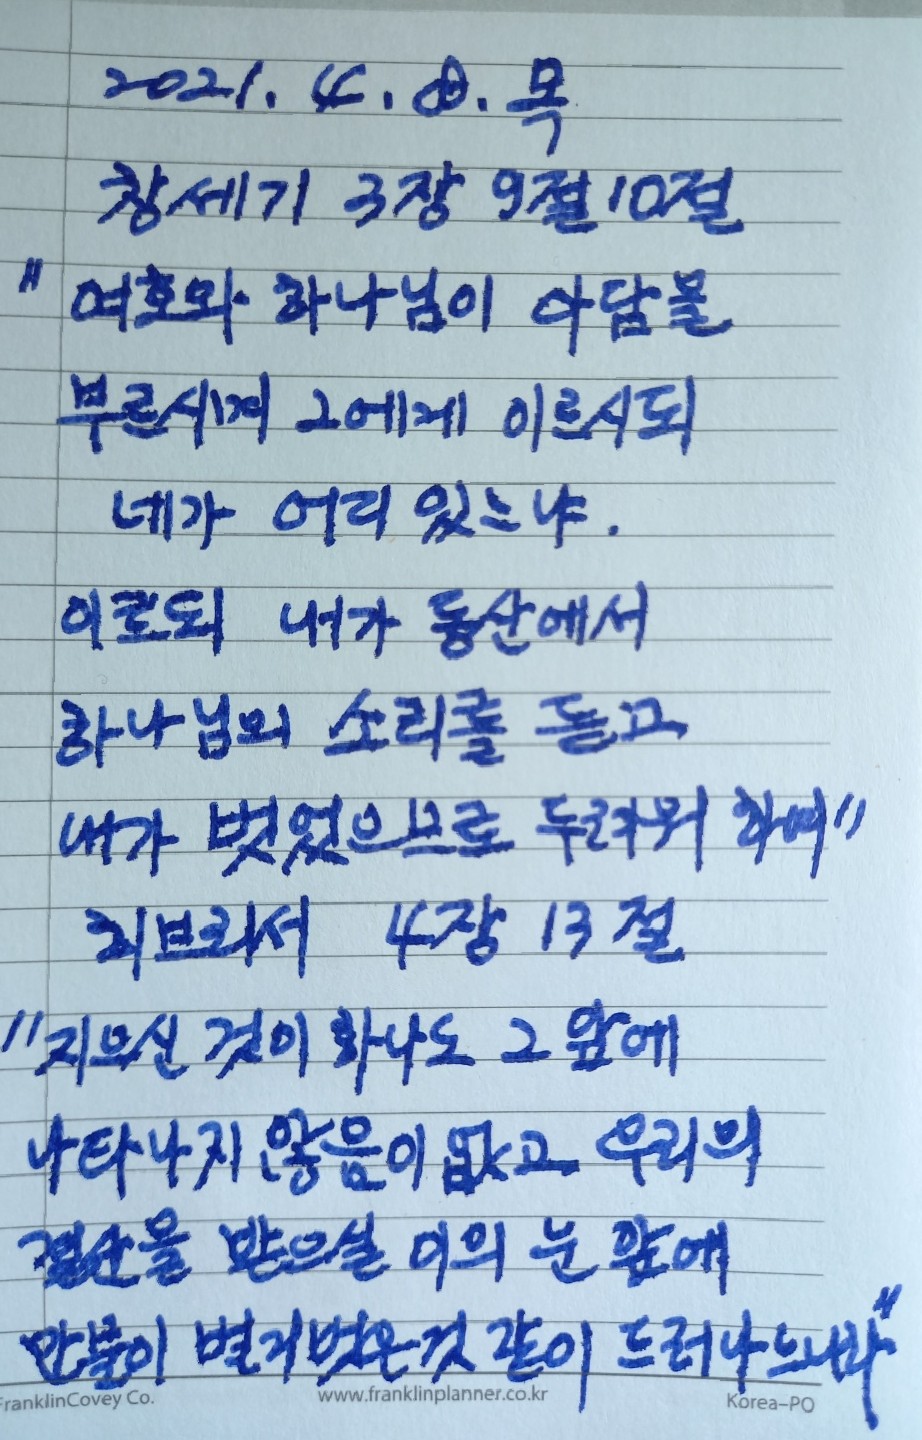 2021. 4. 8. 목
창세기 3장 9절 10절
"여호와 하나님이 아담을
부르시며 그에게 이르시되
네가 어디 있느냐.
이르되 내가 동산에서
하나님의 소리를 듣고
내가 벗었으므로 두려워 하여"
히브리서 4장 13절
"지으신 것이 하나도 그 앞에
나타나지 않음이 없고 우리의
결산을 받으실 이의 눈 앞에
만물이 벌거벗은것 같이 드러나느니라"
FranklinCovey Co. www.franklinplanner.co.kr Korea-PO